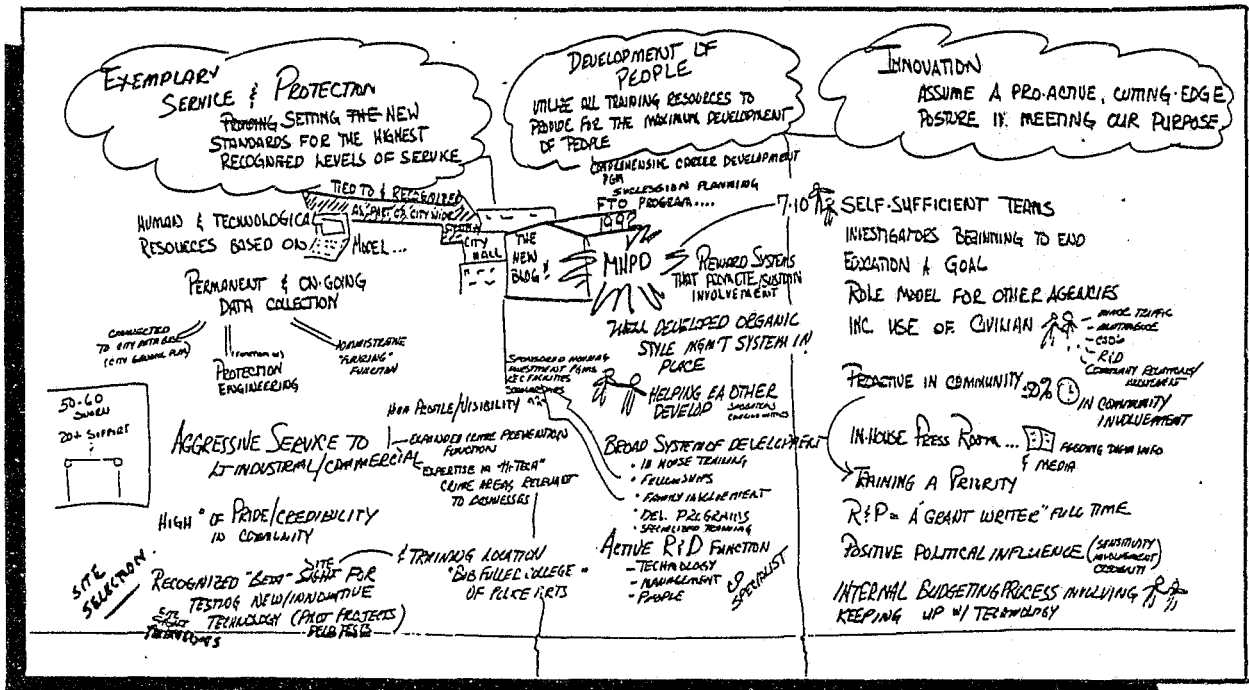 EXEMPLARY
SERVICE & PROTECTION
PROVIDING SETTING THE NEW
STANDARDS FOR THE HIGHEST
RECOGNIZED LEVELS OF SERVICE
TIED TO & RECOGNIZED
AS PART OF CITY WIDE
SYSTEM
HUMAN & TECHNOLOGICAL
RESOURCES BASED ON MODEL...
PERMANENT & ON-GOING
DATA COLLECTION
CONNECTED
TO CITY DATA BASE
(CITY GENERAL PLAN)
PROTECTION
ENGINEERING
ADMINISTRATIVE
"FUNDING"
FUNCTION
50-60
SWORN
20+ SUPPORT
HIGH PROFILE/VISIBILITY
AGGRESSIVE SERVICE TO
LT INDUSTRIAL/COMMERCIAL
EXPANDED CRIME PREVENTION
FUNCTION
EXPERTISE IN "HI-TECH"
CRIME AREAS RELEVANT
TO BUSINESSES
HIGH ° OF PRIDE/CREDIBILITY
IN COMMUNITY
SITE
SELECTION
RECOGNIZED "BETA" SIGHT FOR
SITE
TESTING NEW/INNOVATIVE
TECHNOLOGY (PILOT PROJECTS)
FIELD TESTS
& TRAINING LOCATION
"BUB FULLER COLLEGE"
OF POLICE ARTS
DEVELOPMENT OF
PEOPLE
UTILIZE ALL TRAINING RESOURCES TO
PROVIDE FOR THE MAXIMUM DEVELOPMENT
OF PEOPLE
COMPREHENSIVE CAREER DEVELOPMENT
PGM
SUCCESSION PLANNING
FTO PROGRAM....
CITY
HALL
THE
NEW
BLDG!
MHPD
REWARD SYSTEMS
THAT PROMOTE/SUSTAIN
INVOLVEMENT
WELL DEVELOPED ORGANIC
STYLE MGM'T SYSTEM IN
PLACE
SPONSORED HOUSING
INVESTMENT PGMS
REC FACILITIES
SCHOLARSHIPS
HELPING EA OTHER
DEVELOP
BROAD SYSTEM OF DEVELOPMENT
• IN HOUSE TRAINING
• FELLOWSHIPS
• FAMILY INVOLVEMENT
• DEV. PROGRAMS
• SPECIALIZED TRAINING
ACTIVE R&D FUNCTION
- TECHNOLOGY
- MANAGEMENT
- PEOPLE
SPECIALIST
INNOVATION
ASSUME A PRO-ACTIVE, CUTTING-EDGE
POSTURE IN MEETING OUR PURPOSE
7-10 SELF-SUFFICIENT TEAMS
INVESTIGATORS BEGINNING TO END
EDUCATION A GOAL
ROLE MODEL FOR OTHER AGENCIES
INC. USE OF CIVILIAN
- MINOR TRAFFIC
- CSO'S
- R&D
COMMUNITY RELATIONS/
PROACTIVE IN COMMUNITY
IN COMMUNITY
INVOLVEMENT
IN-HOUSE PRESS ROOM...
FEEDING THEM INFO
& MEDIA
TRAINING A PRIORITY
R&P = A "GRANT WRITER" FULL TIME
POSITIVE POLITICAL INFLUENCE (SENSITIVITY
INVOLVEMENT
CREDIBILITY)
INTERNAL BUDGETING PROCESS INVOLVING
KEEPING UP W/ TECHNOLOGY